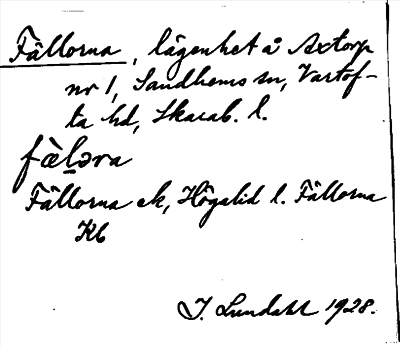 Fällorna, lägenhet å Axtorp
nr 1, Sandhems sn, Vartof-
ta hd, Skarab. l.
fä̀l̠əra
Fällorna ek, Högalid l. Fällorna
Kb
I. Lundahl 1928.